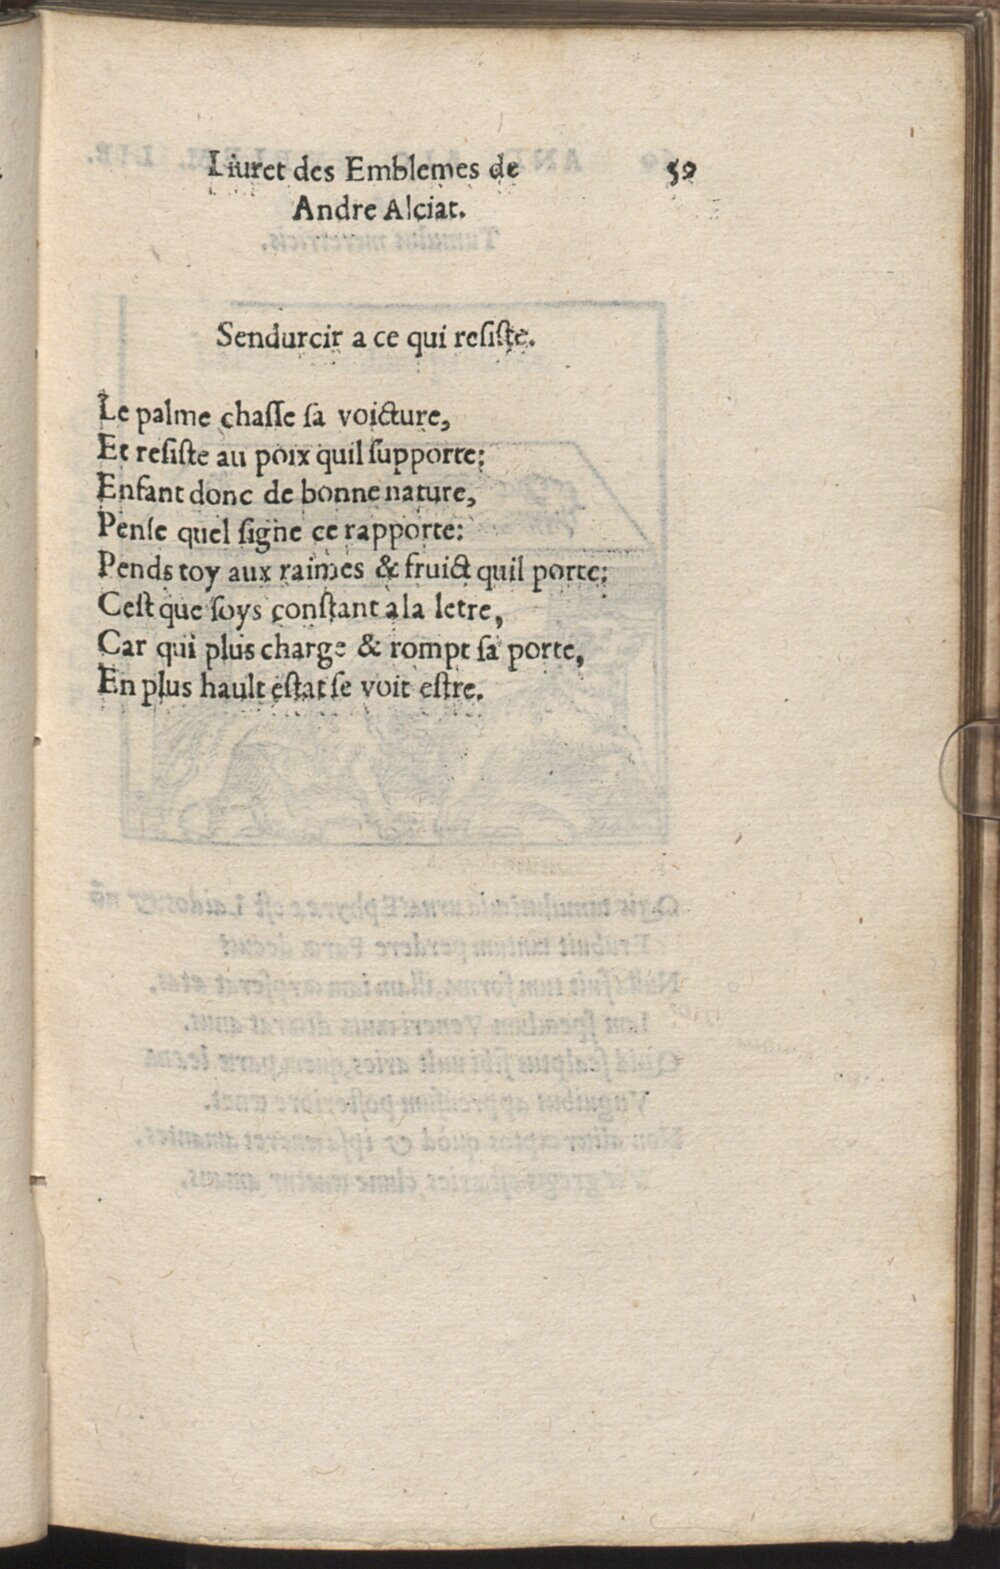 Liuret des Emblemes de 59
Andre Alciat.
Sendurcir a ce qui resiste.
Le palme chasse sa voicture,
Et resiste au poix quil supporte:
Enfant donc de bonne nature,
Pense quel signe ce rapporte:
Pends toy aux raimes & fruict quil porte:
Cest que soys constant a la letre,
Car qui plus charge & rompt sa porte,
En plus hault estat se voit estre.